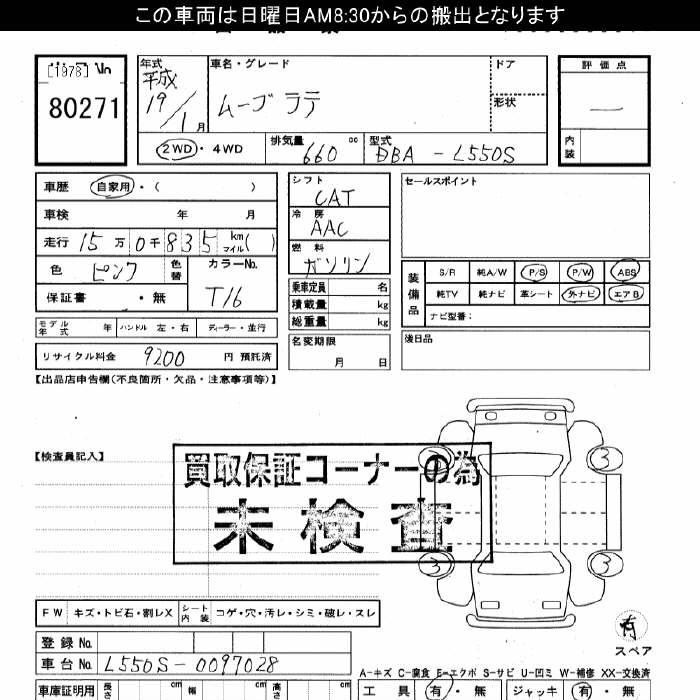 この車両は日曜日AM8:30からの搬出となります
[1978]
80271
年式 平成 19/1月
車名・グレード ムーヴ ラテ
ドア
形状
評価点 ー
内装
2WD・4WD
排気量 660 cc
型式 DBA - L550S
車歴 自家用・( )
車検 年 月
走行 15万0千835 km マイル( )
色 ピンク 色替
カラーNo. T16
保証書 ・無
モデル年式 年 ハンドル 左・右 ディーラー・並行
リサイクル料金 9200 円 預託済
シフト CAT
冷房 AAC
燃料 ガソリン
乗車定員 名
積載量 kg
総重量 kg
名変期限 月 日
セールスポイント
装備品
S/R 純A/W P/S P/W ABS
純TV 純ナビ 革シート 外ナビ エアB
ナビ型番:
後日品
【出品店申告欄(不良箇所・欠品・注意事項等)】
【検査員記入】
買取保証コーナーの為
未検査
3 3
3 3
有
スペア
FW キズ・トビ石・割レX シート内装 コゲ・穴・汚レ・シミ・破レ・スレ
登録No.
車台No. L550S-0097028
A-キズ C-腐食 E-エクボ S-サビ U-凹ミ W-補修 XX-交換済
車庫証明用 長さ cm 幅 cm 高さ cm
工具 有・無 ジャッキ 有・無